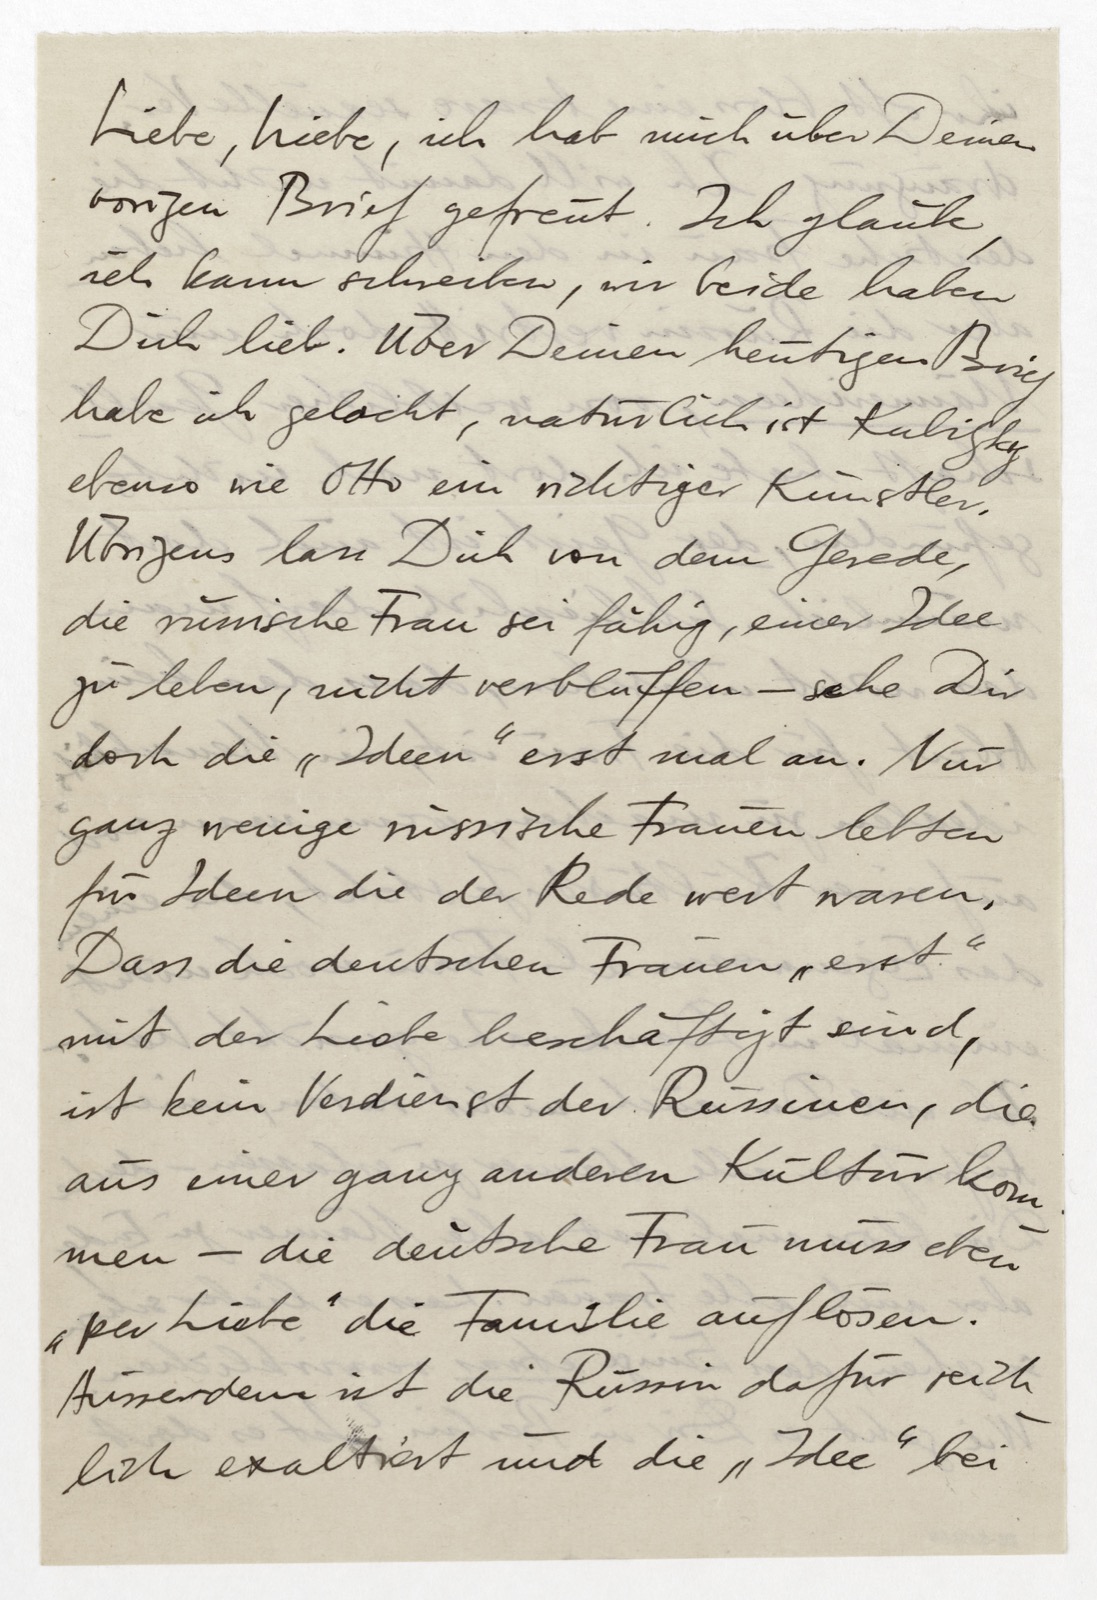 Liebe, Liebe, ich hab mich über Deinen
vorigen Brief gefreut. Ich glaube,
ich kann schreiben, wir beide haben
Dich lieb. Über Deinen heutigen Brief
habe ich gelacht, natürlich ist Kubizky
ebenso wie Otto ein richtiger Künstler.
Übrigens lass Dich von dem Gerede,
die russische Frau sei fähig, einer Idee
zu leben, nicht verblüffen – sehe Dir
doch die „Ideen“ erst mal an. Nur
ganz wenige russische Frauen lebten
für Ideen die der Rede wert waren.
Dass die deutschen Frauen „erst“
mit der Liebe beschäftigt sind,
ist kein Verdienst der Russinen, die
aus einer ganz anderen Kultur kom-
men – die deutsche Frau muss eben
„per Liebe“ die Familie auflösen.
Ausserdem ist die Russin dafür reich-
lich exaltiert und die „Idee“ bei